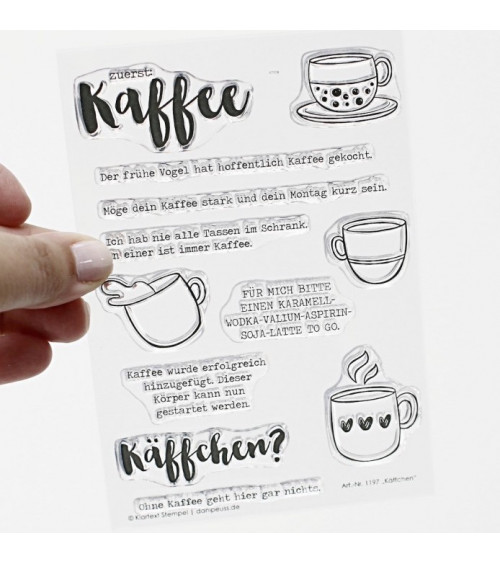 zuerst:
Kaffee
Der frühe Vogel hat hoffentlich Kaffee gekocht.
Möge dein Kaffee stark und dein Montag kurz sein.
Ich hab nie alle Tassen im Schrank.
n einer ist immer Kaffee.
FÜR MICH BITTE
EINEN KARAMELL-
WODKA-VALIUM-ASPIRIN-
SOJA-LATTE TO GO.
Kaffee wurde erfolgreich
hinzugefügt. Dieser
Körper kann nun
gestartet werden.
Käffchen?
Ohne Kaffee geht hier gar nichts.
© Klartext Stempel | danipeuss.de
Art.-Nr. 1197 „Käffchen"